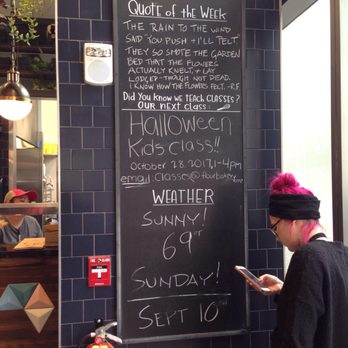 Quote of the Week
THE RAIN TO THE WIND
SAID "YOU PUSH + I'LL PELT."
THEY SO SMOTE THE GARDEN
BED THAT THE FLOWERS
ACTUALLY KNELT, + LAY
LODGED - THOUGH NOT DEAD.
I KNOW HOW THE FLOWERS FELT. -R.F.
DID YOU KNOW WE TEACH CLASSES?
OUR NEXT CLASS:
Halloween
Kids Class!!
October 28, 2017, 1-4pm
email: Classes@flourbakery.com
WEATHER
SUNNY!
69°F
SUNDAY!
SEPT 10TH
FIRE